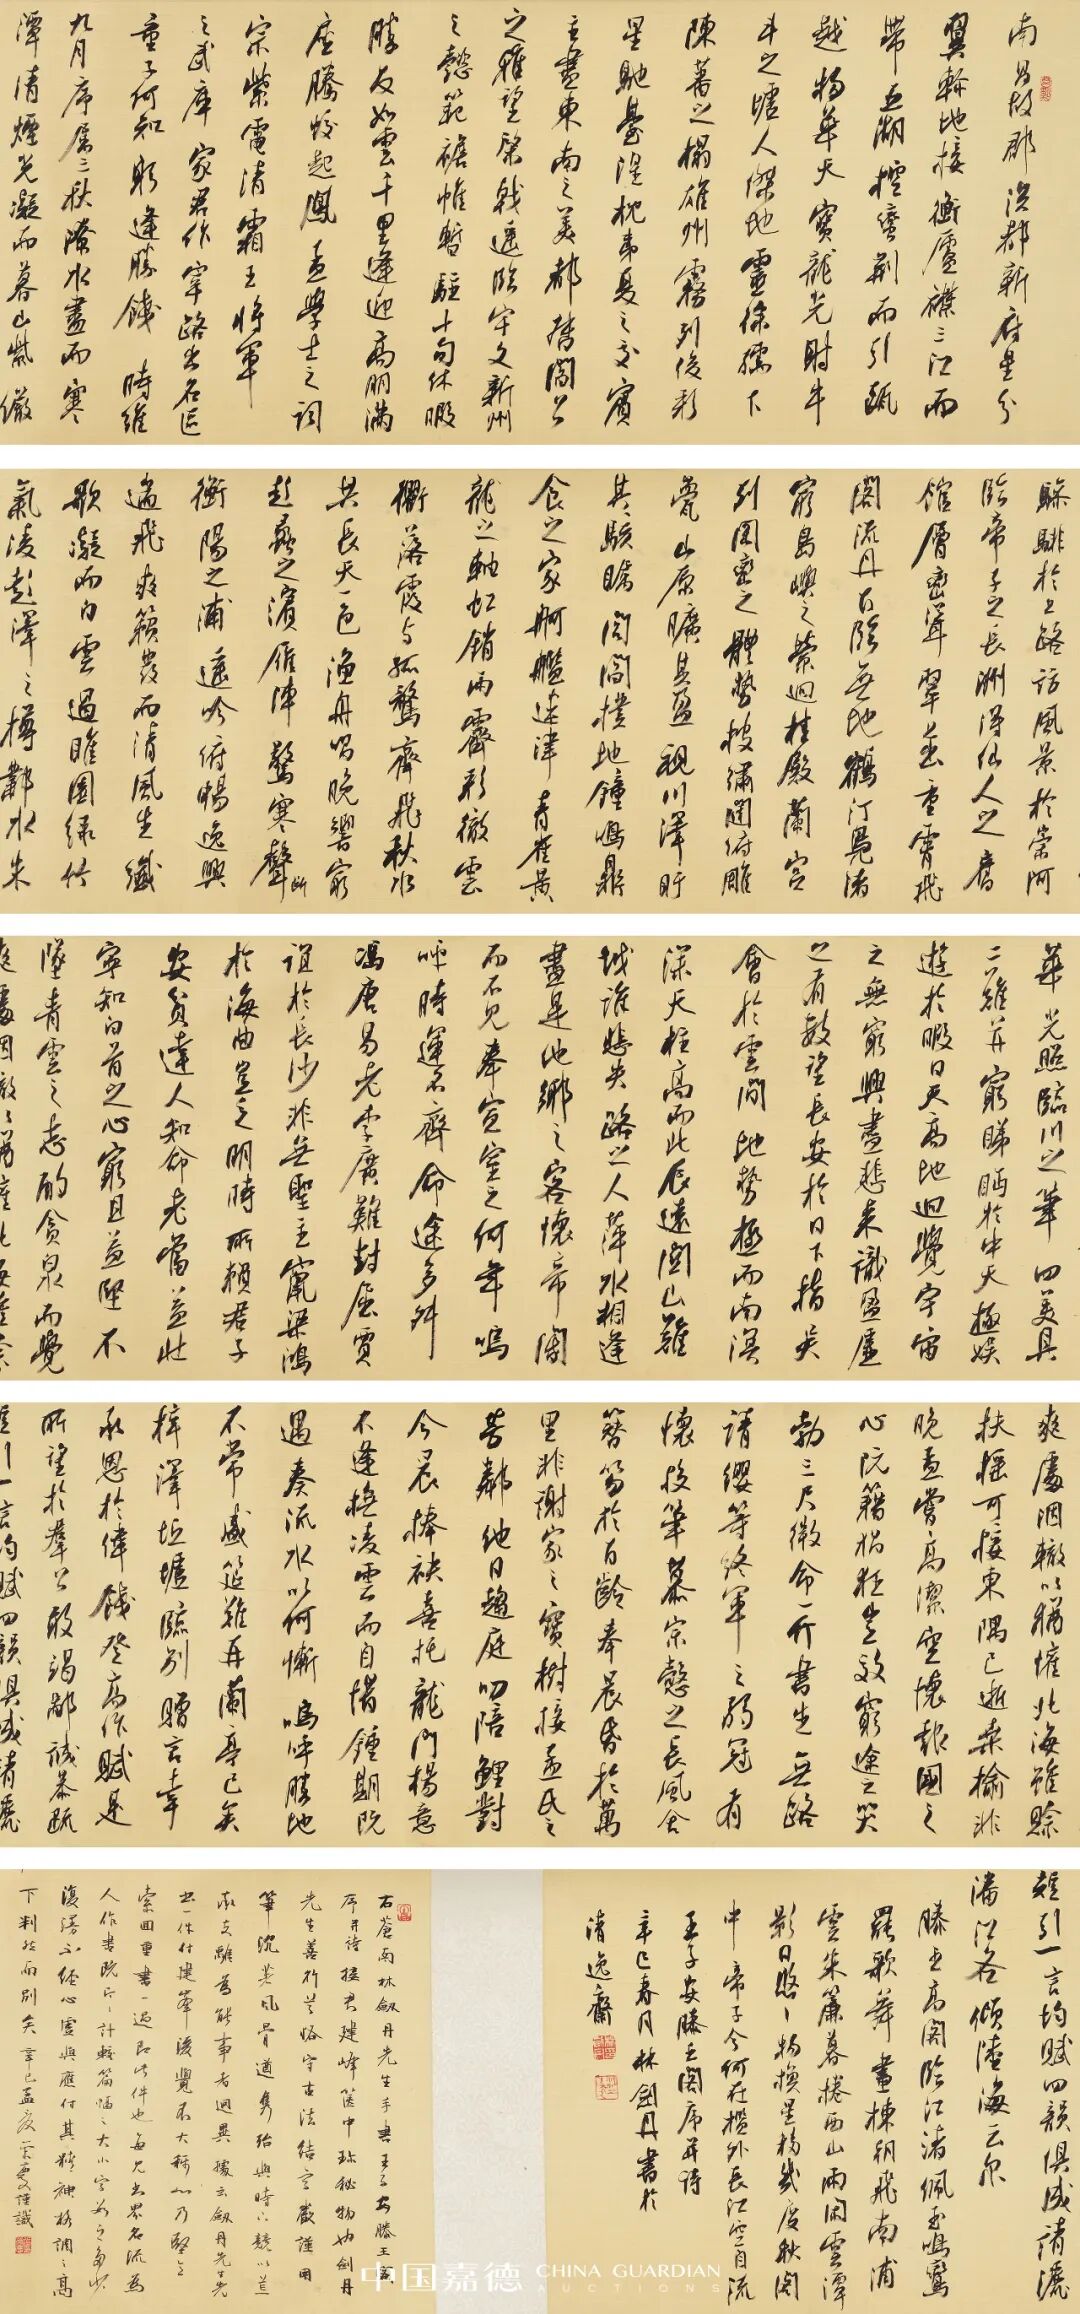 南昌故郡洪都新府星分
翼軫地接衡廬襟三江而
帶五湖控蠻荊而引甌
越物華天寶龍光射牛
斗之墟人傑地靈徐孺下
陳蕃之榻雄州霧列俊彩
星馳臺隍枕夷夏之交賓
主盡東南之美都督閻公
之雅望棨戟遙臨宇文新州
之懿範襜帷暫駐十旬休暇
勝友如雲千里逢迎高朋滿
座騰蛟起鳳孟學士之詞
宗紫電清霜王將軍
之武庫家君作宰路出名區
童子何知躬逢勝餞時維
九月序屬三秋潦水盡而寒
潭清煙光凝而暮山紫儼
驂騑於上路訪風景於崇阿
臨帝子之長洲得仙人之舊
館層巒聳翠上出重霄飛
閣流丹下臨無地鶴汀鳧渚
窮島嶼之縈迴桂殿蘭宮
列岡巒之體勢披繡闥俯雕
甍山原曠其盈視川澤盱
其駭矚閭閻撲地鐘鳴鼎
食之家舸艦迷津青雀黃
龍之軸虹銷雨霽彩徹雲
衢落霞與孤鶩齊飛秋水
共長天一色漁舟唱晚響窮
彭蠡之濱雁陣驚寒聲斷
衡陽之浦遙吟俯暢逸興
遄飛爽籟發而清風生纖
歌凝而白雲遏睢園綠竹
氣凌彭澤之樽鄴水朱
華光照臨川之筆四美具
二難并窮睇眄於中天極娛
遊於暇日天高地迥覺宇宙
之無窮興盡悲來識盈虛
之有數望長安於日下指吳
會於雲間地勢極而南溟
深天柱高而北辰遠關山難
越誰悲失路之人萍水相逢
盡是他鄉之客懷帝閽
而不見奉宣室之何年嗚
呼時運不齊命途多舛
馮唐易老李廣難封屈賈
誼於長沙非無聖主竄梁鴻
於海曲豈乏明時所賴君子
安貧達人知命老當益壯
寧知白首之心窮且益堅不
墜青雲之志酌貪泉而覺
爽處涸轍以猶懽北海雖賒
扶搖可接東隅已逝桑榆非
晚孟嘗高潔空懷報國之
心阮籍猖狂豈效窮途之哭
勃三尺微命一介書生無路
請纓等終軍之弱冠有
懷投筆慕宗愨之長風舍
簪笏於百齡奉晨昏於萬
里非謝家之寶樹接孟氏之
芳鄰他日趨庭叨陪鯉對
今晨捧袂喜托龍門楊意
不逢撫凌雲而自惜鍾期既
遇奏流水以何慚嗚呼勝地
不常盛筵難再蘭亭已矣
梓澤丘墟臨別贈言幸
承恩於偉餞登高作賦是
所望於群公敢竭鄙誠恭疏
短引一言均賦四韻俱成請灑
潘江各傾陸海云爾
滕王高閣臨江渚佩玉鳴鸞
罷歌舞畫棟朝飛南浦
雲朱簾暮捲西山雨閑雲潭
影日悠悠物換星移幾度秋閣
中帝子今何在檻外長江空自流
王子安滕王閣序并詩
辛巳春月林劍丹書於
清逸齋
右蒼南林劍丹先生手書王子安滕王閣
序并詩君建峰篋中珍秘物也劍丹
先生善行草恪守古法結字嚴謹用
筆沉著風骨遒雋殆與時下競以
為能事者迥異據云劍丹先生先
書一件付建峰後覺不大稱心乃
索回重書一過即此件也每見書界名流為
人作書計較篇幅之大小字
復漫不經心虛與應付其精神格調之高
下判然而別矣辛巳孟夏謹識
中国嘉德 CHINA GUARDIAN
AUCTIONS